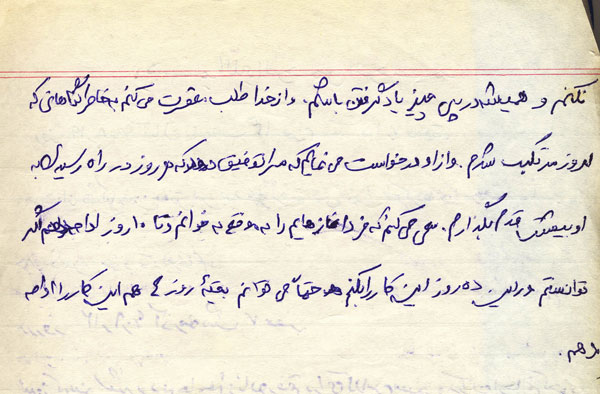 نکنم و همیشه در پی چیز یاد گرفتن باشم. و از خدا طلب مغفرت می‌کنم به خاطر گناهانی که
امروز مرتکب شدم. و از او درخواست می نمایم که مرا توفیق دهد که هر روز در راه رسیدن به
او بیشتر قدم بگذارم. سعی می کنم که فردا نمازهایم را به موقع به خوانم و تا ۱۰ روز ادامه دهم اگر
توانستم در این ده روز این کار را بکنم حتماً می توانم بقیهٔ روزها هم این کار را ادامه
دهم.